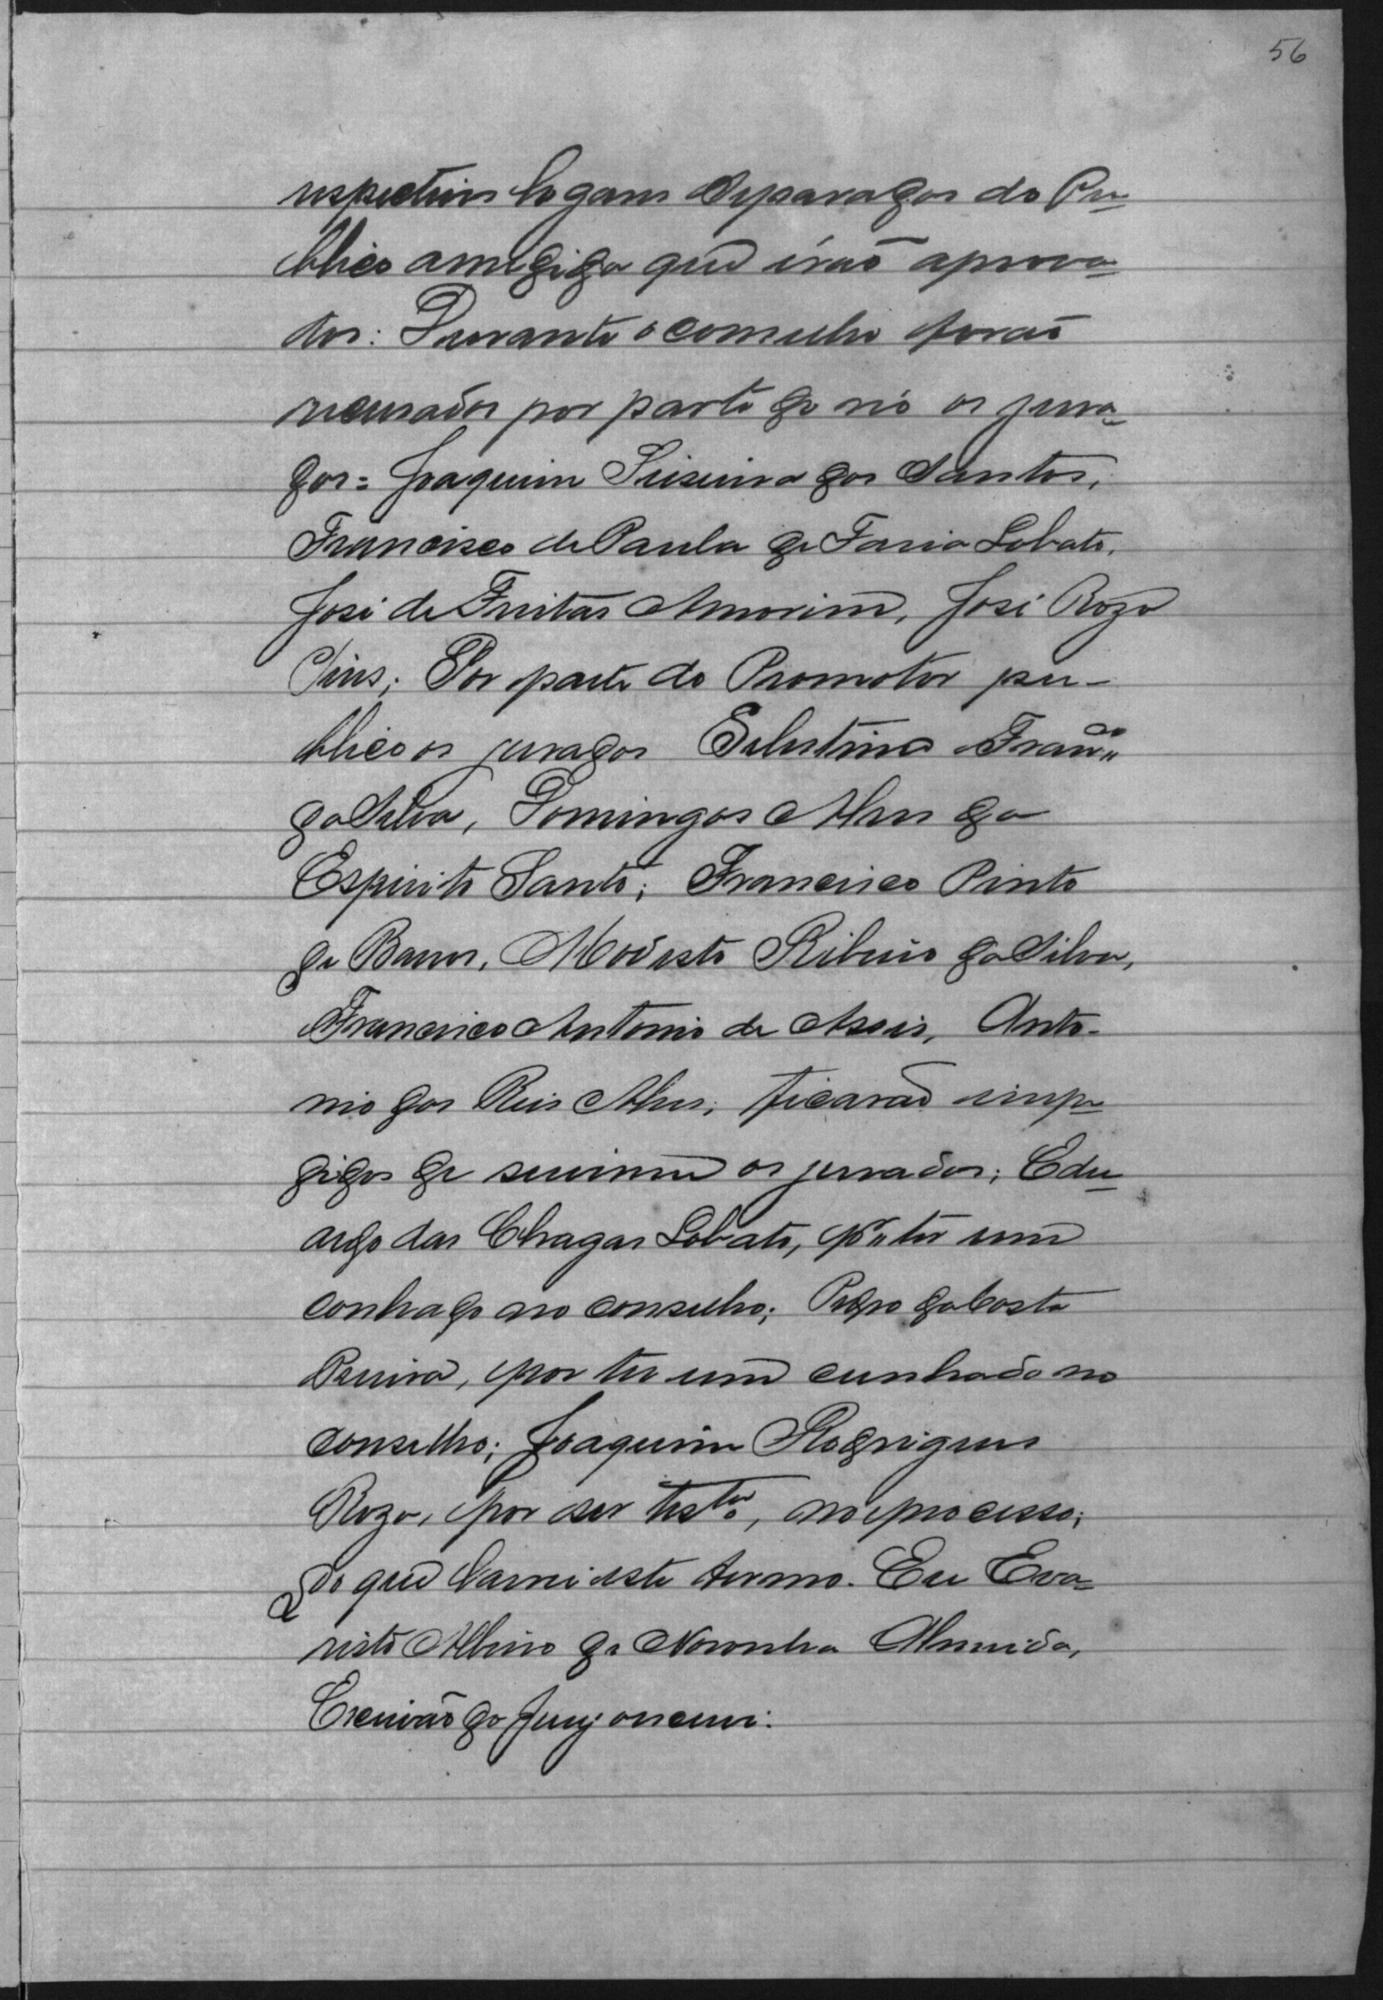 56
respectivos logares separados do Pu-
blico a medida que irão aprova-
dos: Durante o comselho forão
recusados por parte do réo os jura-
dos = Joaquim Teixeira dos Santos,
Francisco de Paula de Faria Lobato,
José de Freitas Amorim, José Rozo
Pires; Por parte do Promotor pu-
blico os jurados Celestino Fran.co
da Silva, Domingos Alves do
Espirito Santo; Francisco Pinto
de Barros, Modesto Ribeiro da Silva,
Francisco Antonio de Assis, Anto-
nio dos Reis Alves; ficarão impe-
didos de servirem os jurados; Edu-
ardo das Chagas Lobato, pr ter um
conhado no conselho; Pedro da Costa
Pereira, por ter um cunhado no
conselho; Joaquim Rodrigues
Rozo, por ser testa, no processo;
do que lavrei este termo. Eu Eva-
risto Albino de Noronha Almeida,
Escrivão do Jury o escrevi.